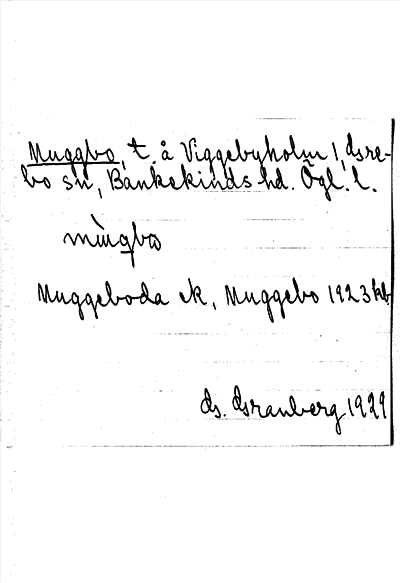 Muggbo, t. å Viggebyholm 1, Gre-
bo sn, Bankekinds hd. Ögl. l.
mùgbω
Muggeboda ek, Muggebo 1923 kb
G. Granberg 1929